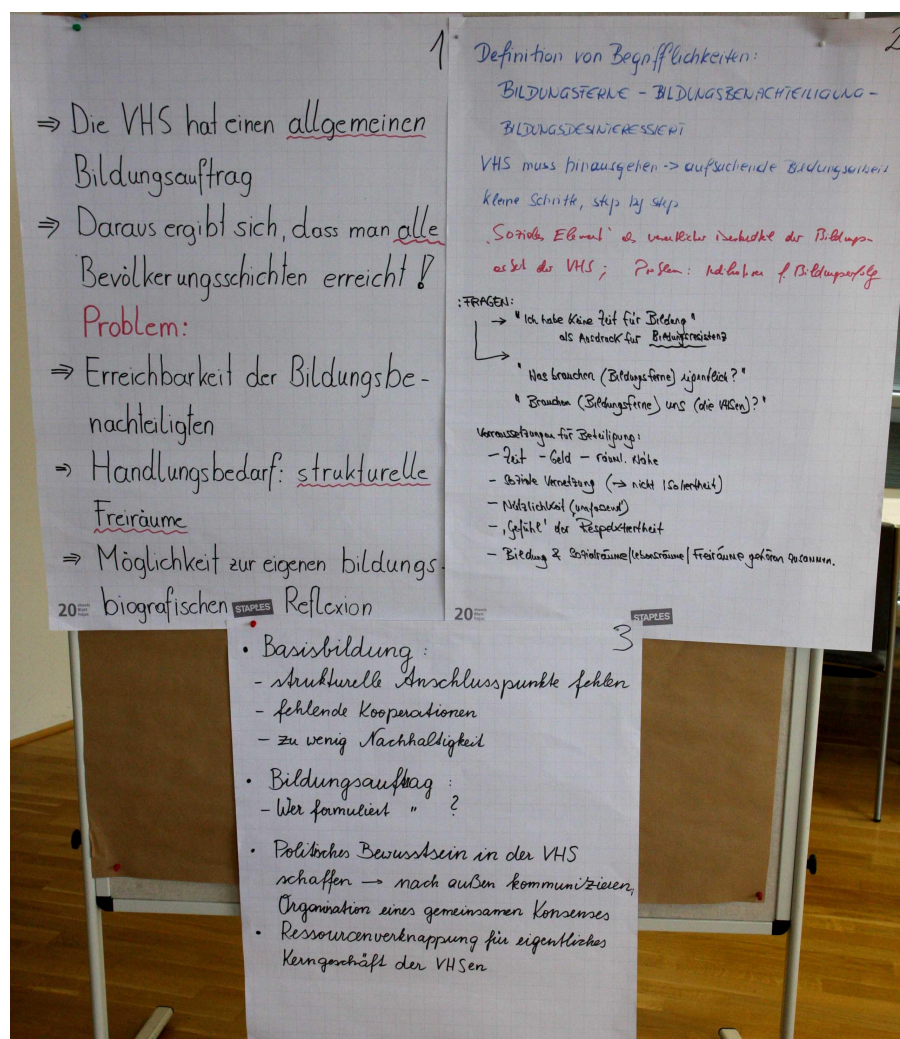 1
⇒ Die VHS hat einen allgemeinen
Bildungsauftrag
⇒ Daraus ergibt sich, dass man alle
Bevölkerungsschichten erreicht!
Problem:
⇒ Erreichbarkeit der Bildungsbe-
nachteiligten
⇒ Handlungsbedarf: strukturelle
Freiräume
⇒ Möglichkeit zur eigenen bildungs-
biografischen Reflexion
20
STAPLES
2
Definition von Begrifflichkeiten:
BILDUNGSFERNE - BILDUNGSBENACHTEILIGUNG -
BILDUNGSDESINTERESSIERT
VHS muss hinausgehen -> aufsuchende Bildungsarbeit
kleine Schritte, step by step
"Soziales Element" als der Bildungs-
der VHS; Problem: Indikatoren f. Bildungserfolg
:FRAGEN:
→ "Ich habe keine Zeit für Bildung"
als Ausdruck für Bildungsresistenz
"Was brauchen (Bildungsferne) eigentlich?"
"Brauchen (Bildungsferne) uns (die VHSen)?"
Voraussetzungen für Beteiligung:
- Zeit - Geld - räuml. Nähe
- soziale Vernetzung (→ nicht Isoliertheit)
- Nützlichkeit (umfassend)
- 'Gefühl' der Respektiertheit
- Bildung & Sozialräume/Lebensräume/Freiräume gehören zusammen.
20
STAPLES
3
• Basisbildung:
- strukturelle Anschlusspunkte fehlen
- fehlende Kooperationen
- zu wenig Nachhaltigkeit
• Bildungsauftrag:
- Wer formuliert " ?
• Politisches Bewusstsein in der VHS
schaffen → nach außen kommunizieren,
Organisation eines gemeinsamen Konsenses
• Ressourcenverknappung für eigentliches
Kerngeschäft der VHSen